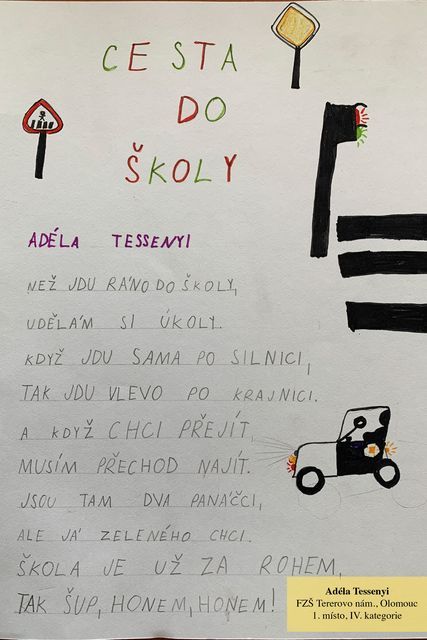 CESTA
DO
ŠKOLY
ADÉLA TESSENYI
NEŽ JDU RÁNO DO ŠKOLY,
UDĚLÁM SI ÚKOLY.
KDYŽ JDU SAMA PO SILNICI,
TAK JDU VLEVO PO KRAJNICI.
A KDYŽ CHCI PŘEJÍT,
MUSÍM PŘECHOD NAJÍT.
JSOU TAM DVA PANÁČCI,
ALE JÁ ZELENÉHO CHCI.
ŠKOLA JE UŽ ZA ROHEM,
TAK ŠUP, HONEM, HONEM!
Adéla Tessenyi
FZŠ Tererovo nám., Olomouc
1. místo, IV. kategorie